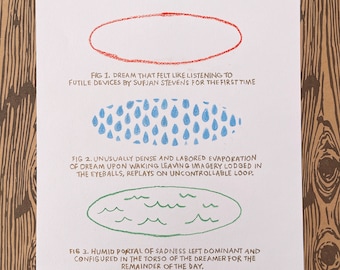 FIG 1. DREAM THAT FELT LIKE LISTENING TO
FUTILE DEVICES BY SUFJAN STEVENS FOR THE FIRST TIME
FIG 2. UNUSUALLY DENSE AND LABORED EVAPORATION
OF DREAM UPON WAKING LEAVING IMAGERY LODGED IN
THE EYEBALLS, REPLAYS ON UNCONTROLLABLE LOOP.
FIG 3. HUMID PORTAL OF SADNESS LEFT DOMINANT AND
CONFIGURED IN THE TORSO OF THE DREAMER FOR THE
REMAINDER OF THE DAY.